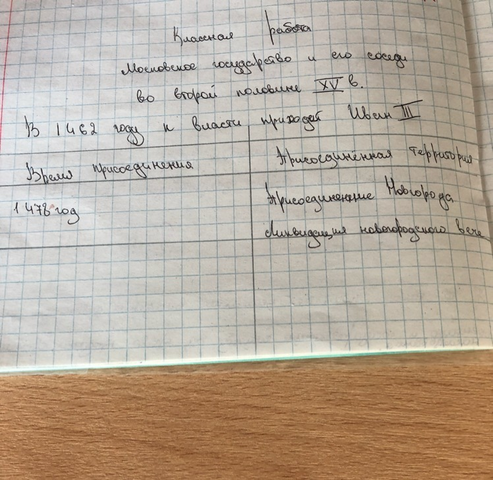 Классная работа
Московское государство и его соседи
во второй половине XV в.
В 1462 году к власти приходит Иван III
Время присоединения
Присоединённая территория
1478 год
Присоединение Новгорода
Ликвидация новгородского вече